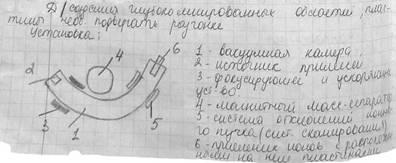 Д/создания глубоко легированных областей, плас-
тины нео. подбирать
Установка:
1 - вакуумная камера.
2 - источник примеси
3 - фокусирующее и ускоряющее
уст-во
4 - магнитной масс-сепаратор
5 - система отклонения ионно-
го пучка (сист. сканирования)
6 - приемник ионов с располож.
на нем пластинами
4
6
2
3
1
5